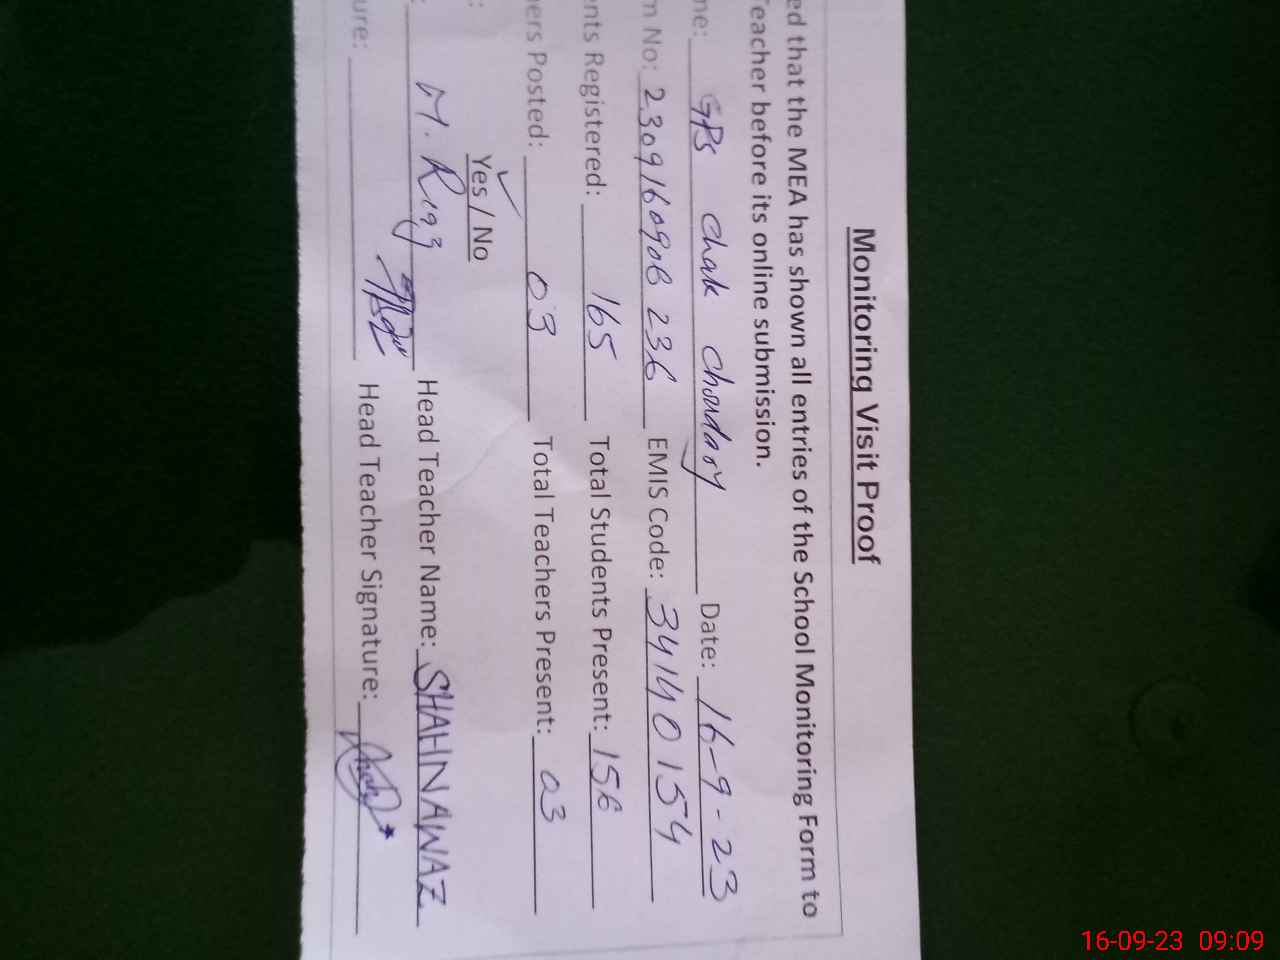 Monitoring Visit Proof
ed that the MEA has shown all entries of the School Monitoring Form to
Teacher before its online submission.
me: GPS Chak Choudary Date: 16-9-23
m No: 230916090B 236 EMIS Code: 34140154
ents Registered: 165 Total Students Present: 156
ers Posted: 03 Total Teachers Present: 03
: Yes / No
: M. Riaz Head Teacher Name: SHAHNAWAZ
ure: Head Teacher Signature:
16-09-23 09:09